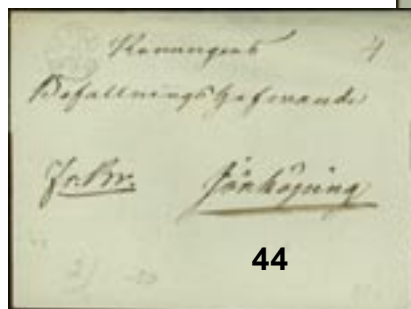 Konungens
Befallningshafvande
Fr. Br. Jönköping
44